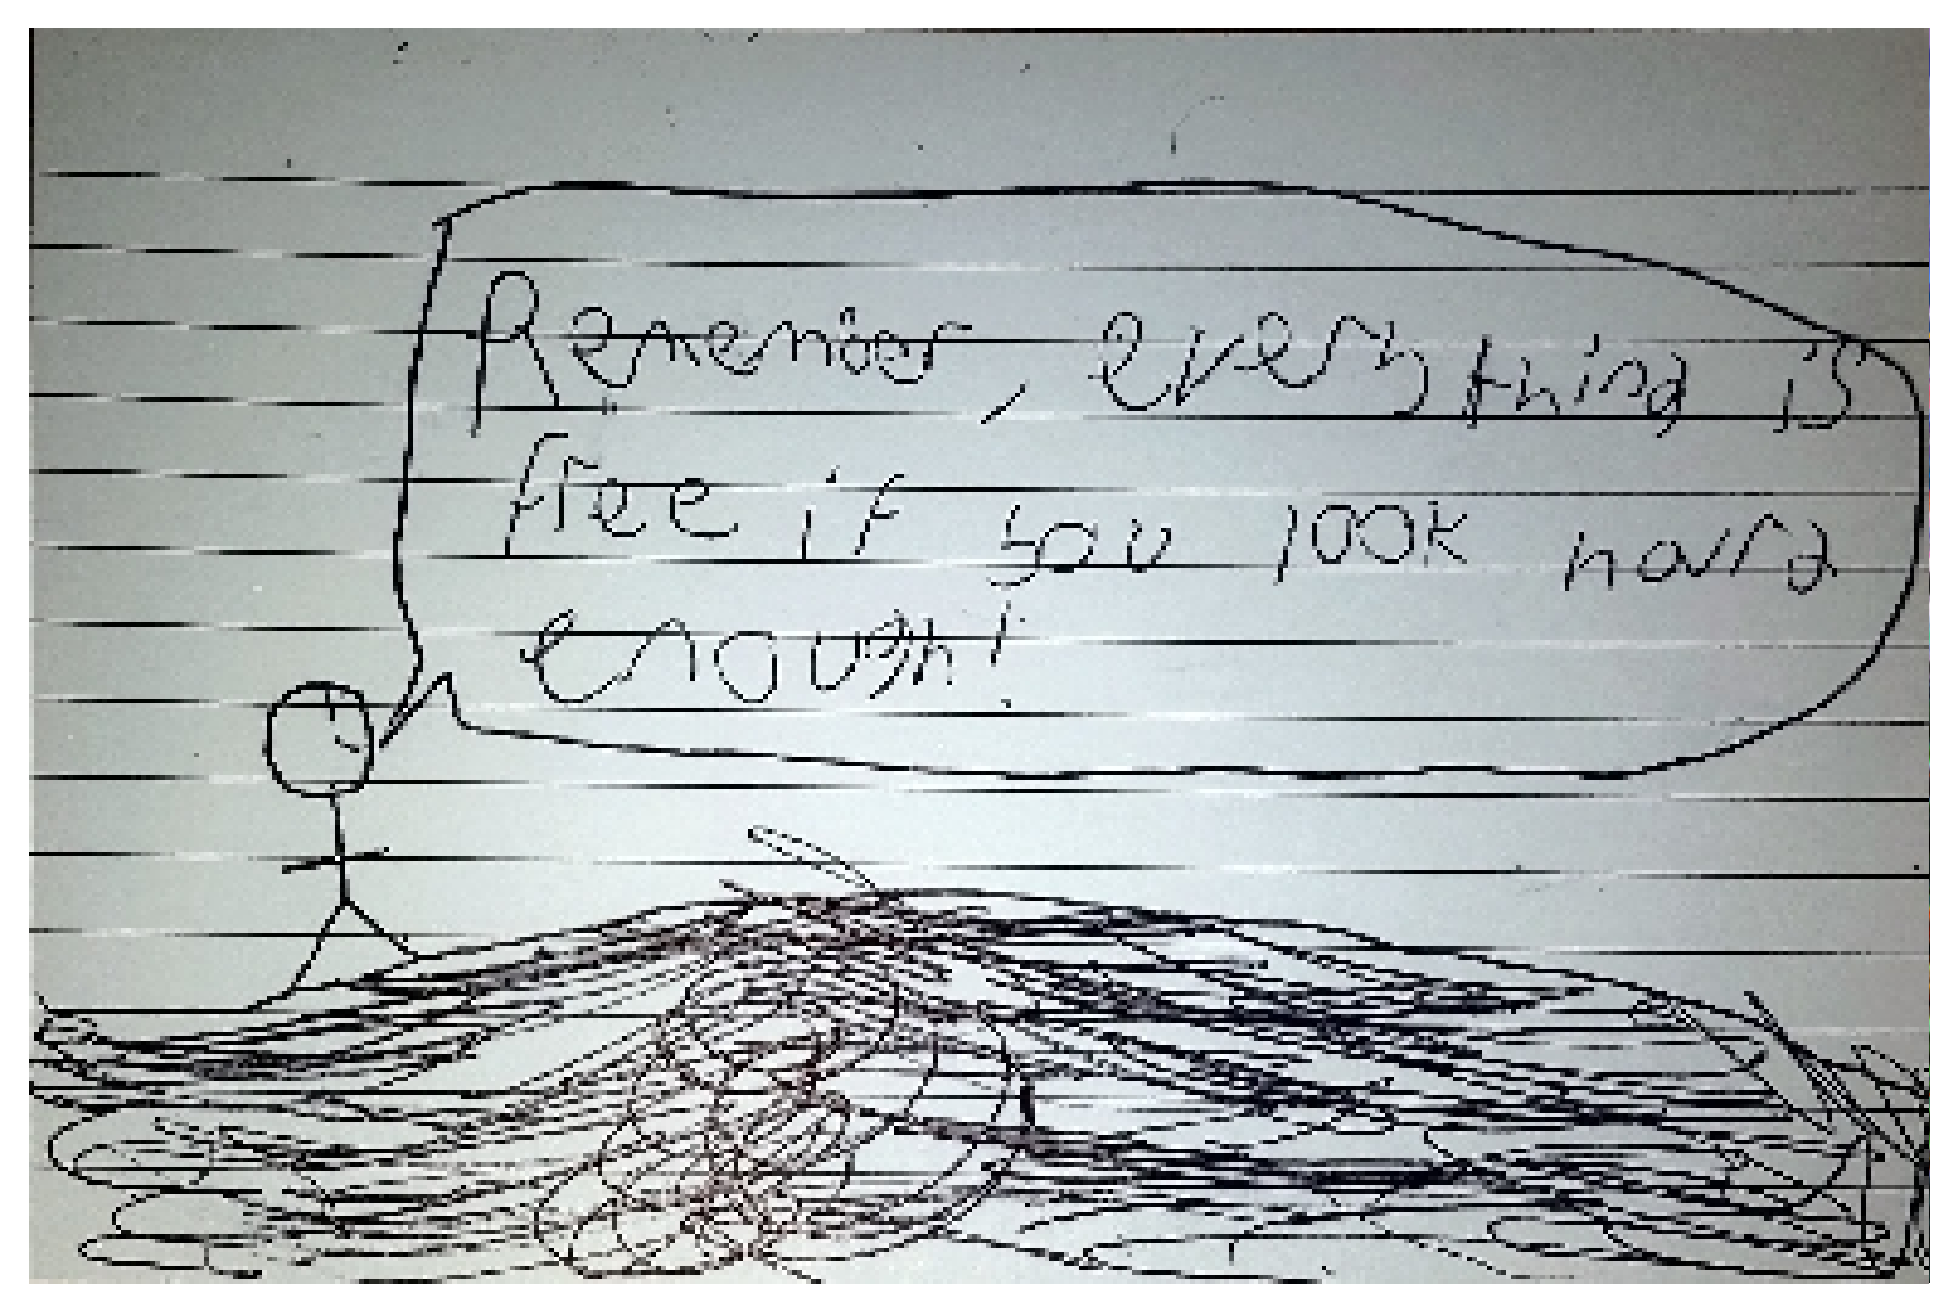 Remember, everything is
free if you look hard
enough!